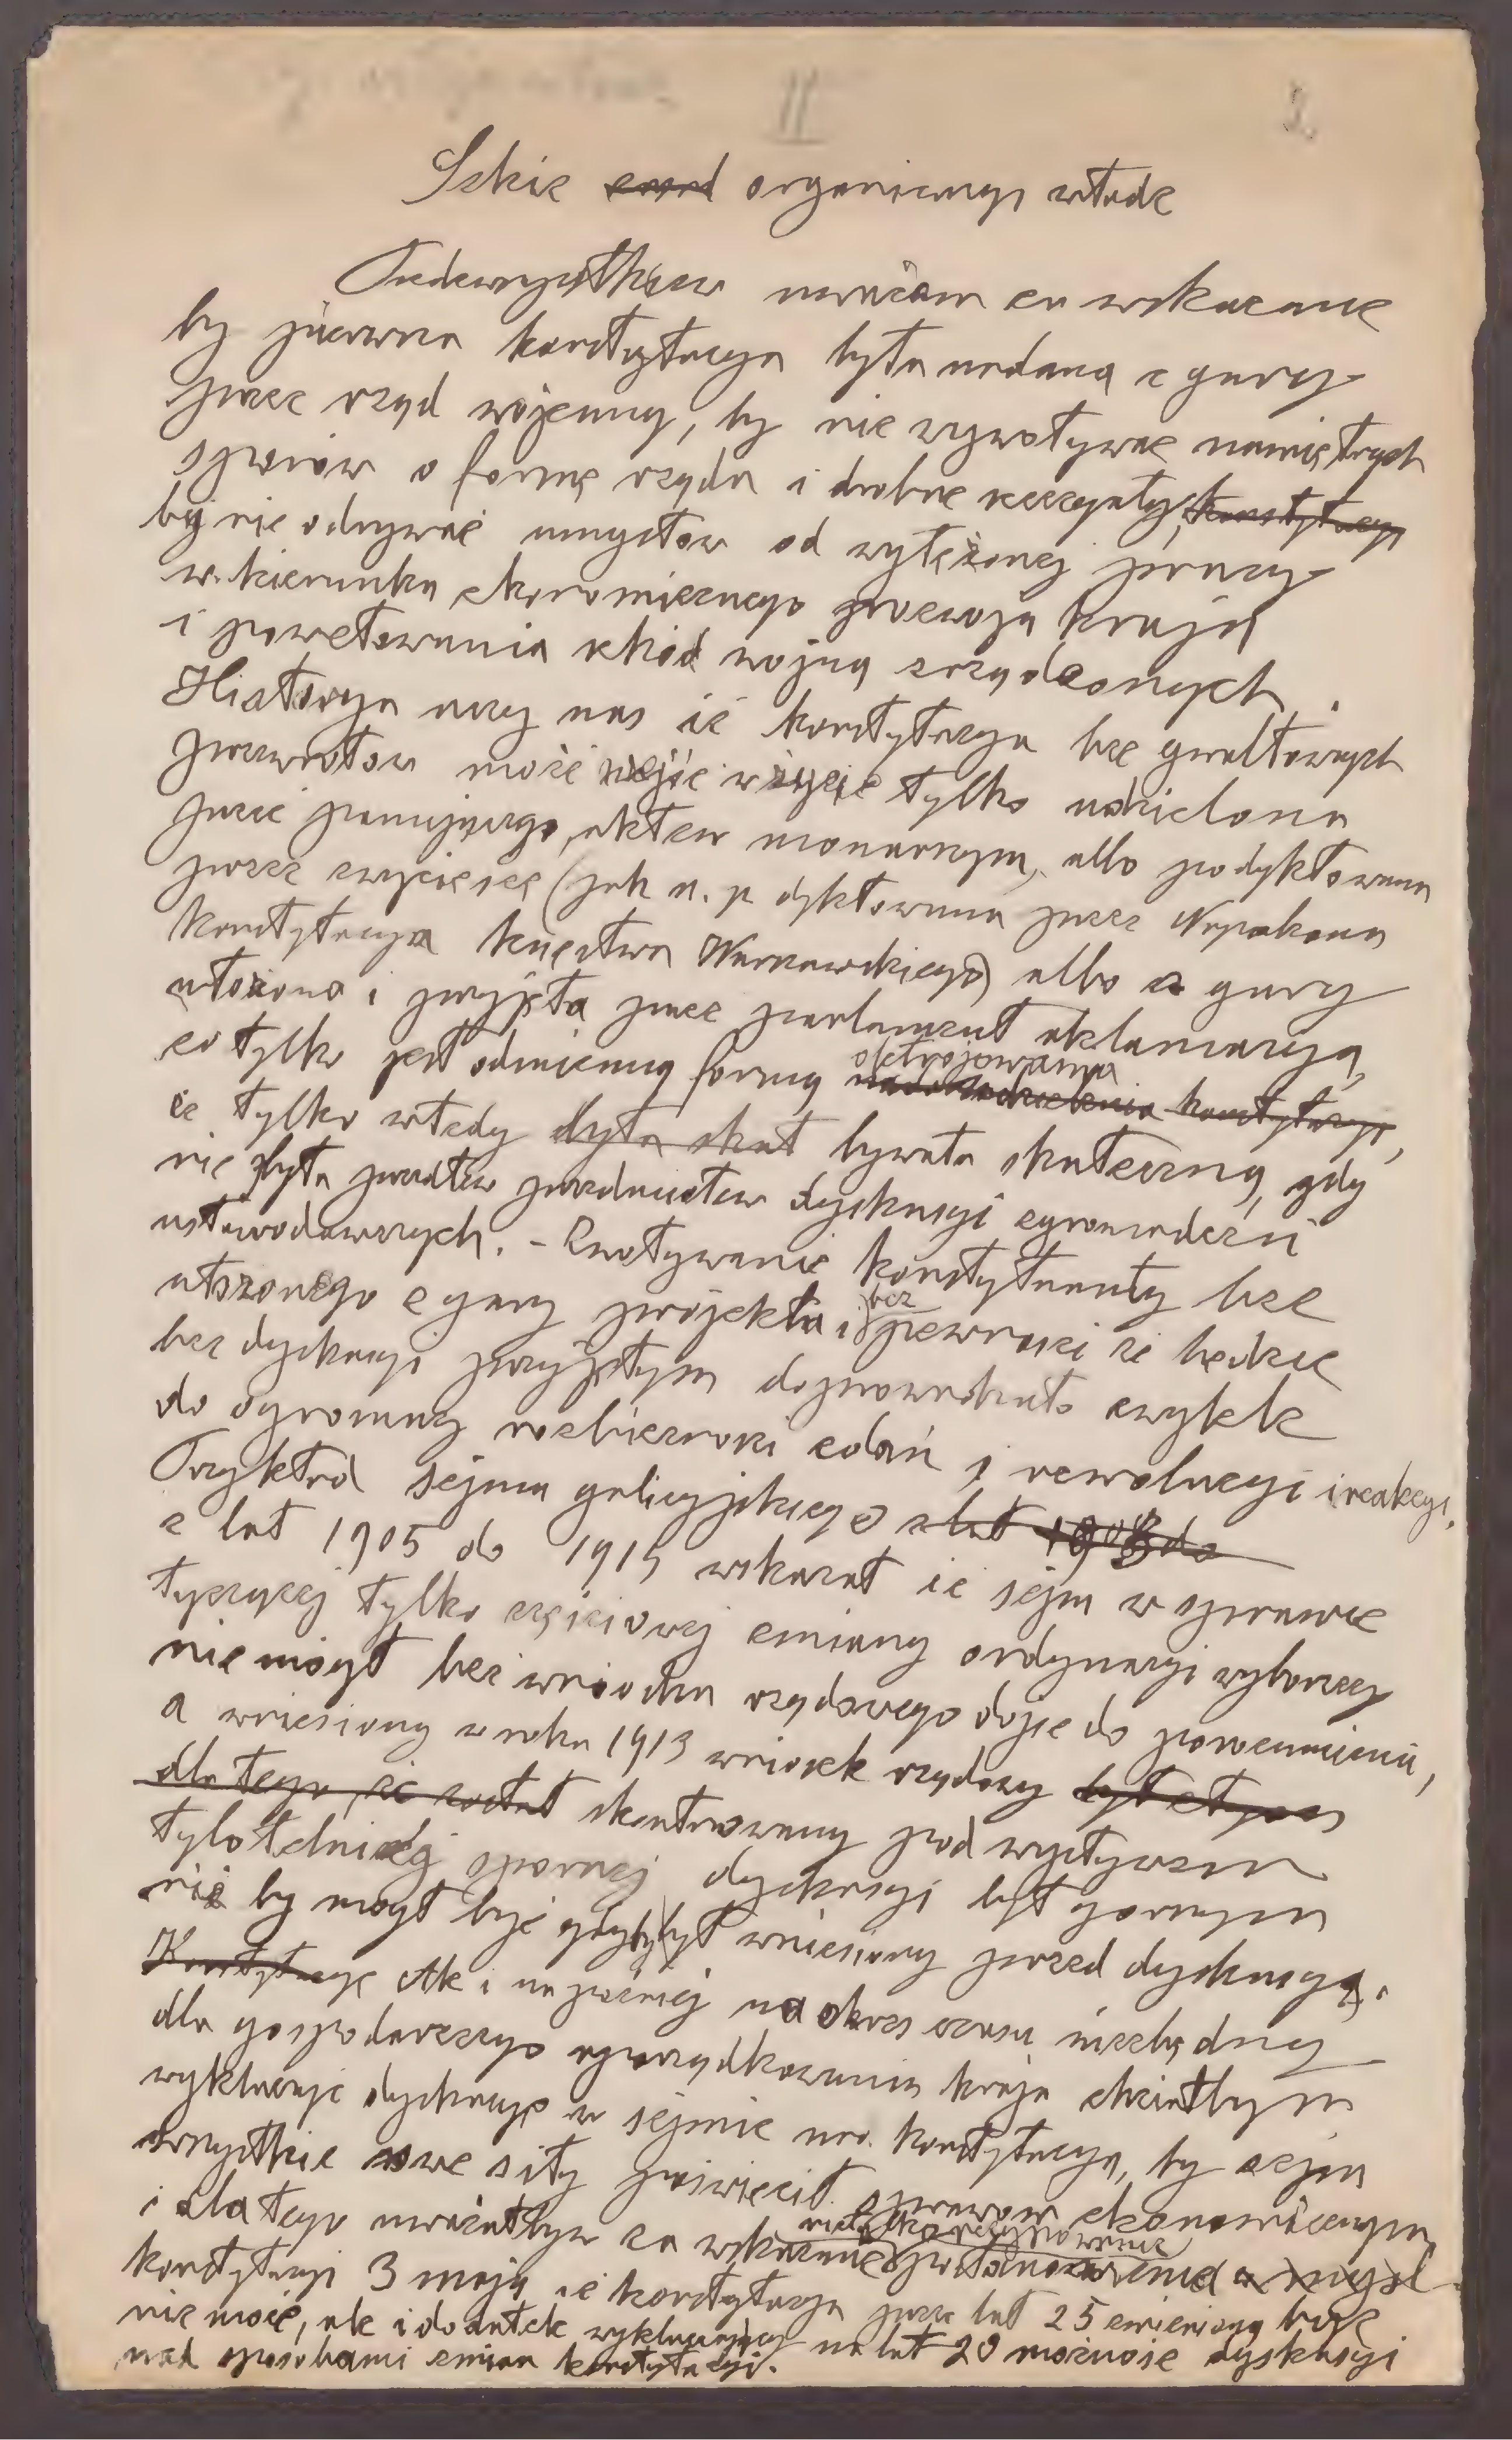 II 2
Szkic organizacyi władz
Przedewszystkiem uważam za wskazane
by pierwsza konstytucya była nadaną z gury
przez rząd wojenny, by nie wywoływać namiętnych
sporów o formę rządu i drobne szczegóły konstytucyi
by nie odrywać umysłów od wytężonej pracy
w kierunku ekonomicznego rozwoju kraju
i powetowania szkód wojną zrządzonych.
Historya uczy nas że konstytucya bez gwałtownych
przewrotów może wejść w życie tylko udzielona
przez panującego, aktem monarszym, albo podyktowana
przez zwycięzcę (jak n. p. dyktowana przez Napoleona
konstytucya księstwa Warszawskiego) albo z gury
ułożona i przyjęta przez parlament aklamacyą,
co tylko jest odmienną formą oktrojowania konstytucyi,
że tylko wtedy była skut bywała skuteczną, gdy
nie była przedtem przedmiotem dyskusyi zgromadzeń
ustawodawczych. - Zwoływanie konstytuanty bez
ułożonego z gury projektu i bez pewności że będzie
bez dyskusyi przyjętym doprowadzało zwykle
do ogromnej rozbieżności zdań i rewolucyi i reakcyi.
Przykład sejmu galicyjskiego z lat 1908 do
z lat 1905 do 1915 wskazał że sejm w sprawie
tyczącej tylko częściowej zmiany ordynacyi wyborczej
nie mógł bez wniosku rządowego dojść do porozumienia,
a wniesiony w roku 1913 wniosek rządowy był
dla tego, że został skonstruowany pod wpływem
tyloletniej spornej dyskusyi był gorszym
niż by mógł być gdyby był wniesiony przed dyskusyą.
Konstytucyę Ale i na później na okres czasu niezbędny
dla gospodarczego uporządkowania kraju chciałbym
wykluczyć dyskusyę w sejmie nad konstytucyą, by sejm
wszystkie swe siły poświęcił sprawom ekonomicznym
i dla tego uważałbym za wskazane nietylko postanowienie
konstytucyi 3 maja że konstytucya przez lat 25 zmienioną być
nie może, ale i dodatek wykluczający na lat 20 możność dyskusyi
nad sposobami zmian konstytucyi.